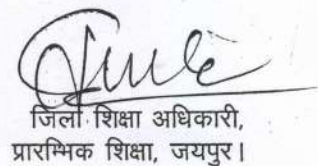 जिला शिक्षा अधिकारी,
प्रारम्भिक शिक्षा, जयपुर।